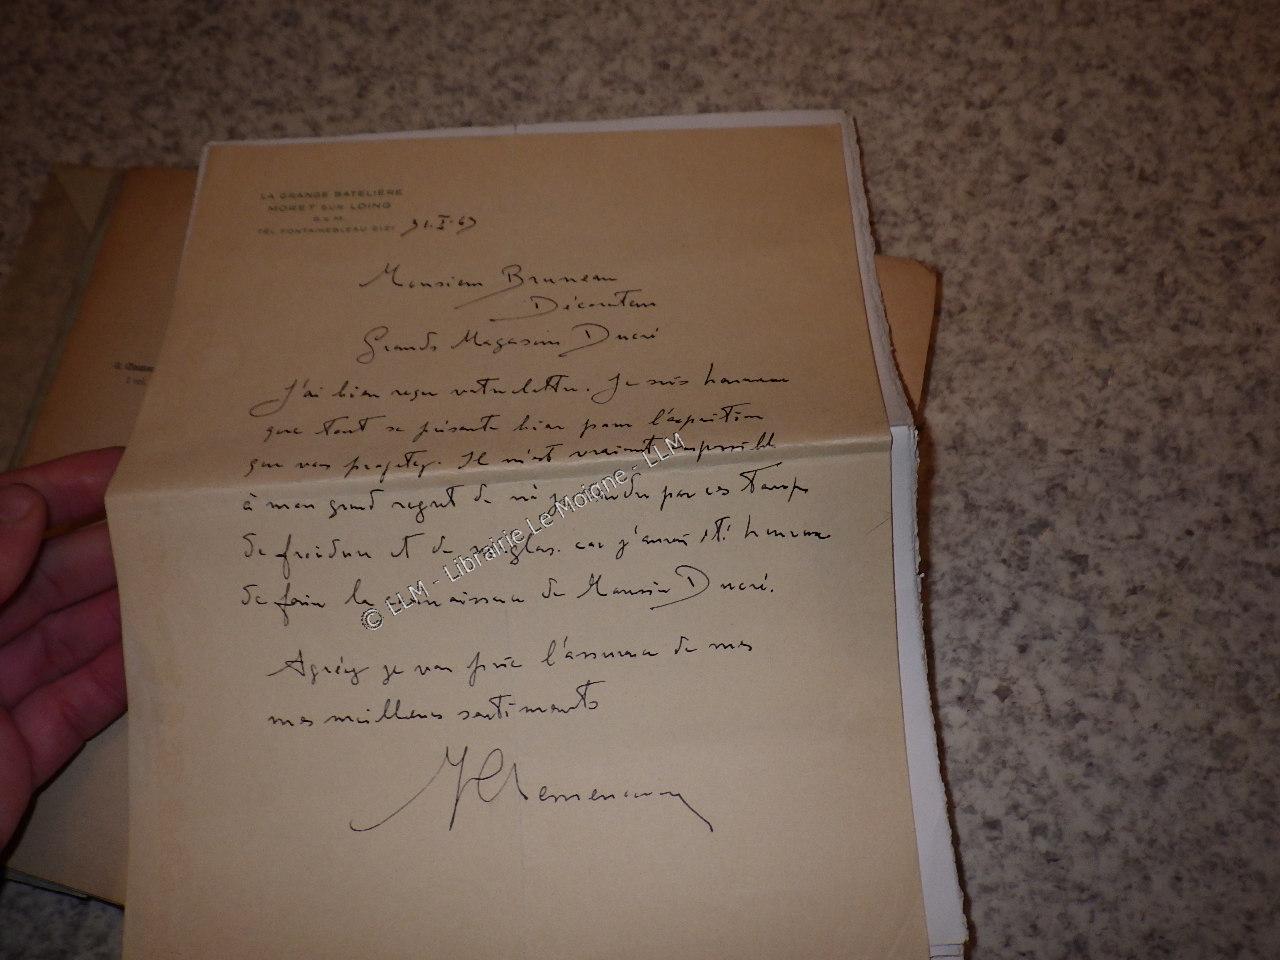 LA GRANGE BATELIÈRE
MORET SUR LOING
S. & M.
TEL. FONTAINEBLEAU
31.I.63
Monsieur Bruneau
Décorateur
Grands Magasins Ducré
J'ai bien reçu votre lettre. Je suis heureux
que tout se présente bien pour l'exposition
que vous projetez. Il m'est vraiment impossible
à mon grand regret de m'y rendre par ces temps
de froidure et de verglas. car j'aurais été heureux
de faire la connaissance de Monsieur Ducré.
Agréez je vous prie l'assurance de mes
mes meilleurs sentiments
© LLM - Librairie Le Moigne - LLM